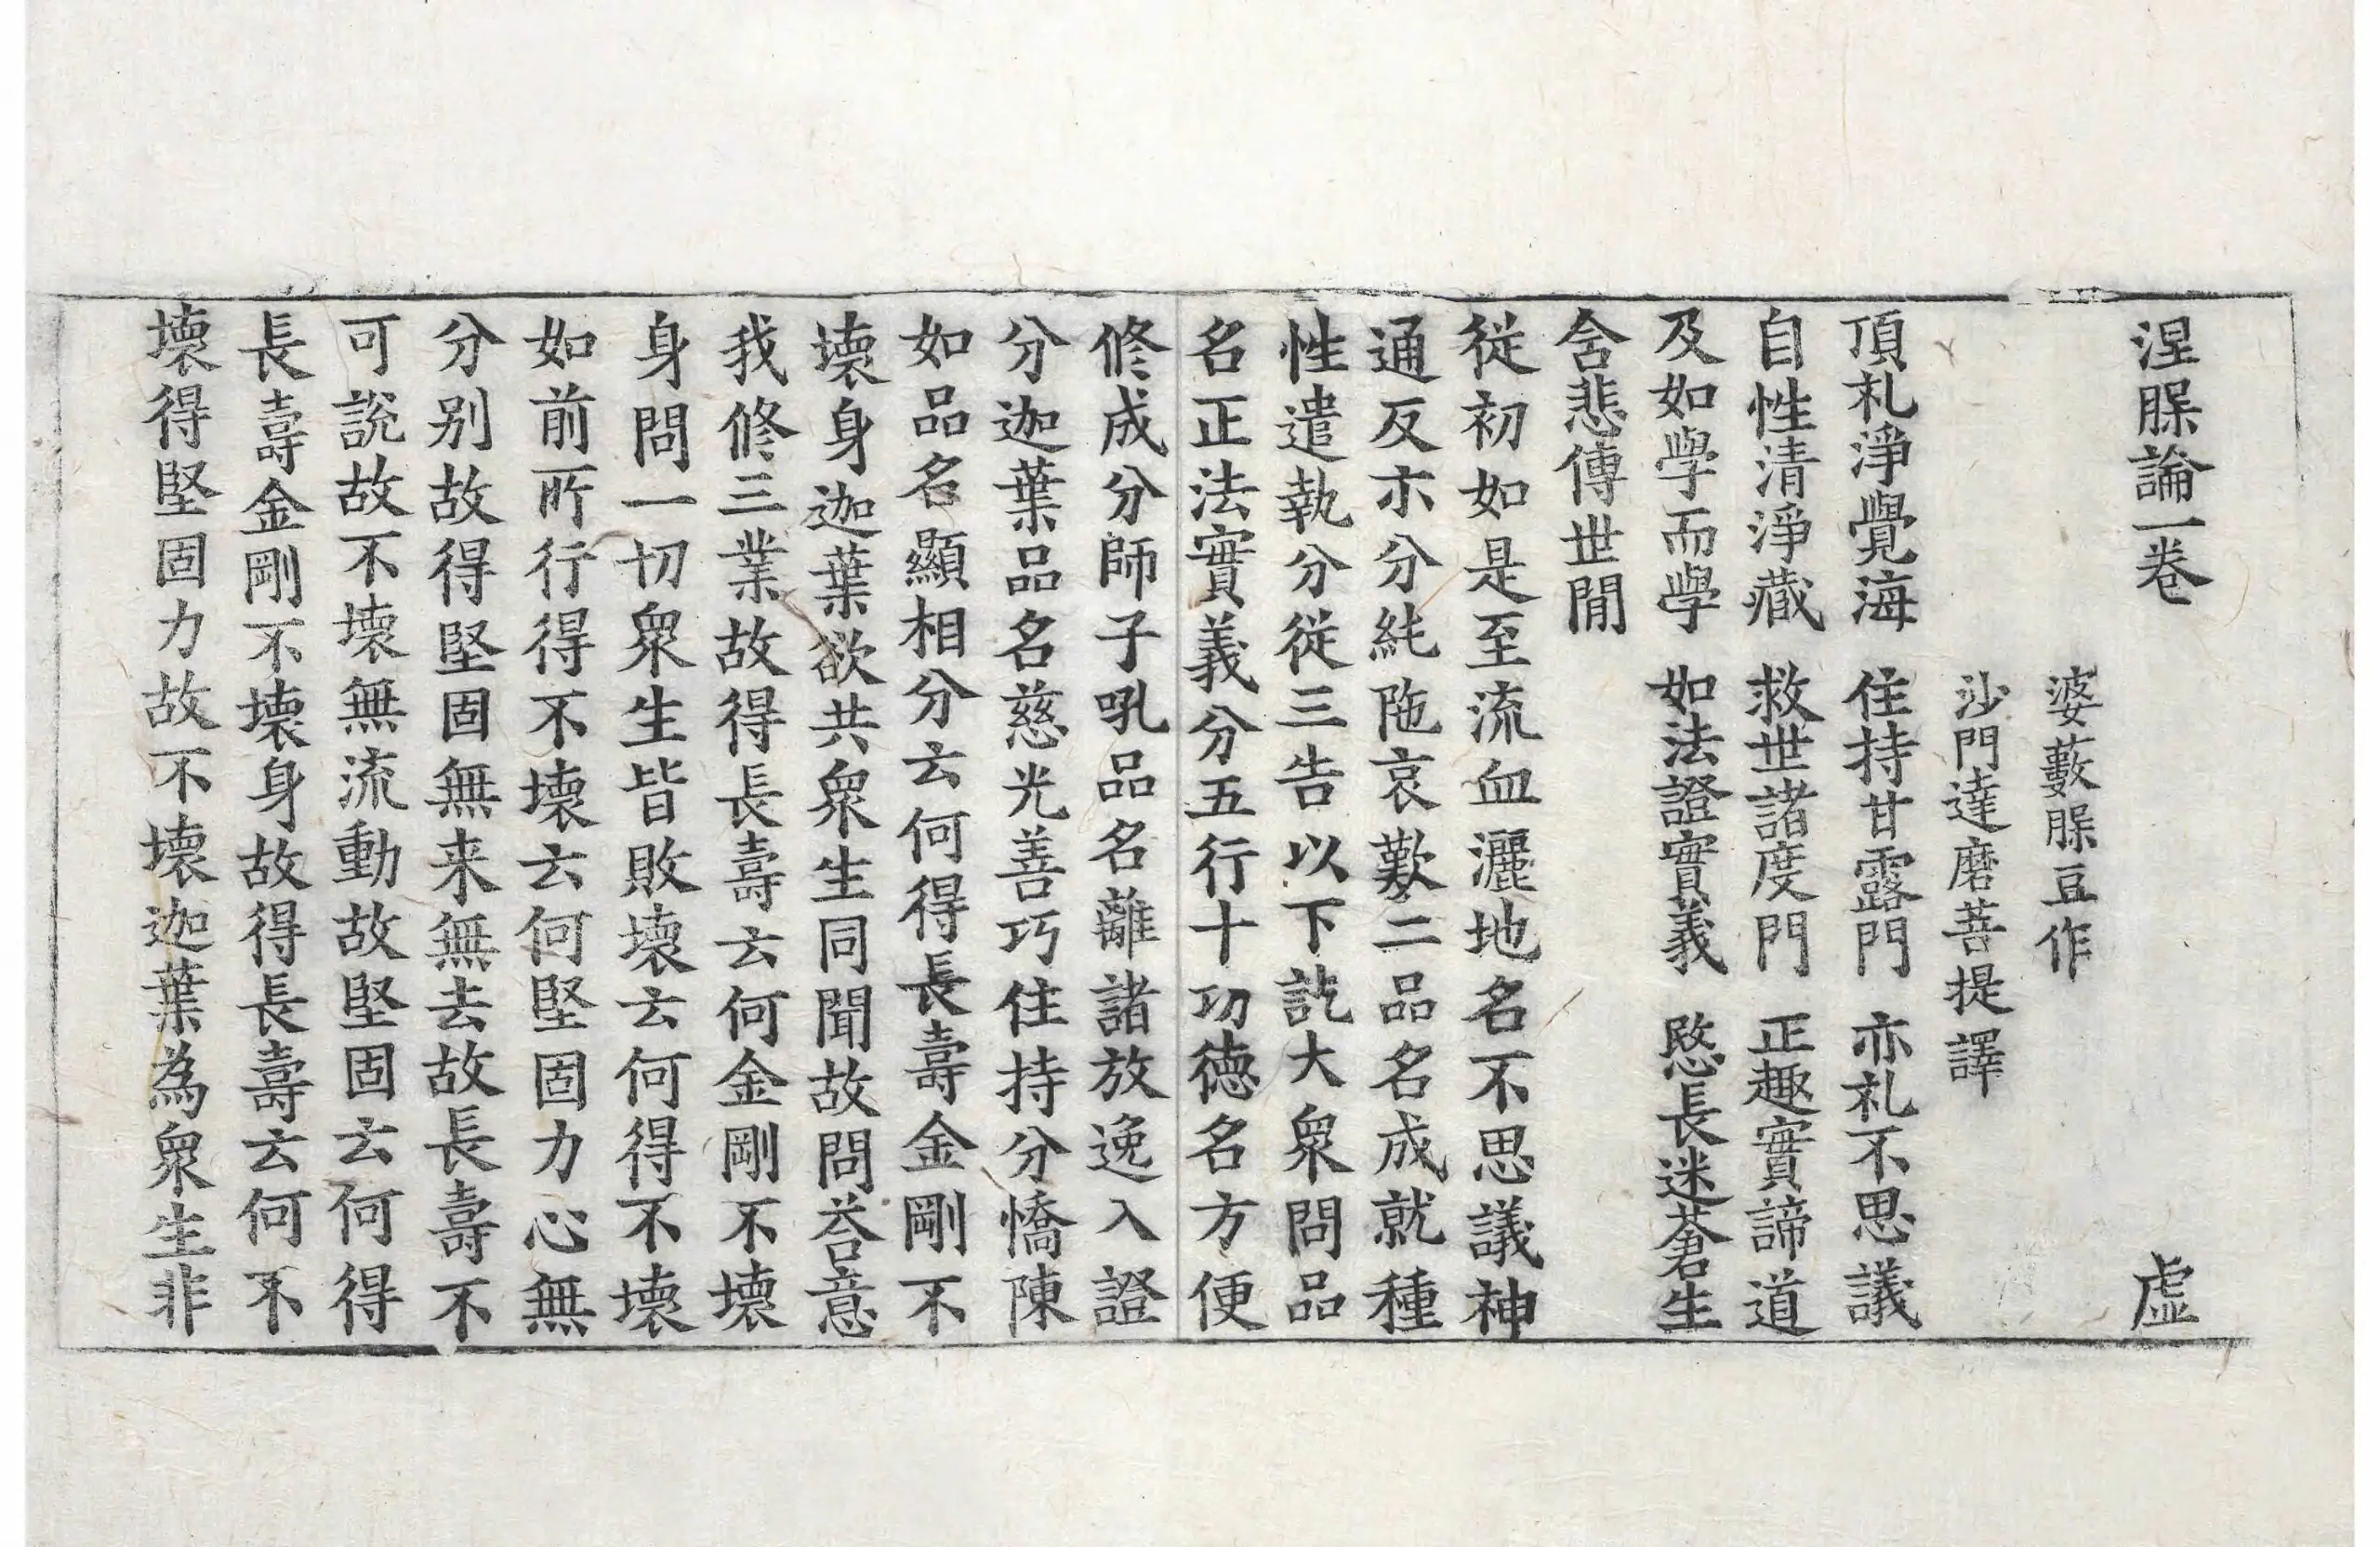 涅槃論一卷 虛
婆藪槃豆作
沙門達磨菩提譯
頂礼淨覺海 住持甘露門 亦礼不思議
自性清淨藏 救世諸度門 正趣實諦道
及如學而學 如法證實義 愍長迷蒼生
舍悲傳世閒
從初如是至流血灑地名不思議神
通反亦分純陁哀歎二品名成就種
性遣執分從三告以下訖大衆問品
名正法實義分五行十功德名方便
修成分師子吼品名離諸放逸入證
分迦葉品名慈光善巧住持分憍陳
如品名顯相分云何得長壽金剛不
壞身迦葉欲共衆生同聞故問荅意
我修三業故得長壽云何金剛不壞
身問一切衆生皆敗壞云何得不壞
如前所行得不壞云何堅固力心無
分别故得堅固無来無去故長壽不
可說故不壞無流動故堅固云何得
長壽金剛不壞身故得長壽云何不
壞得堅固力故不壞迦葉為衆生非